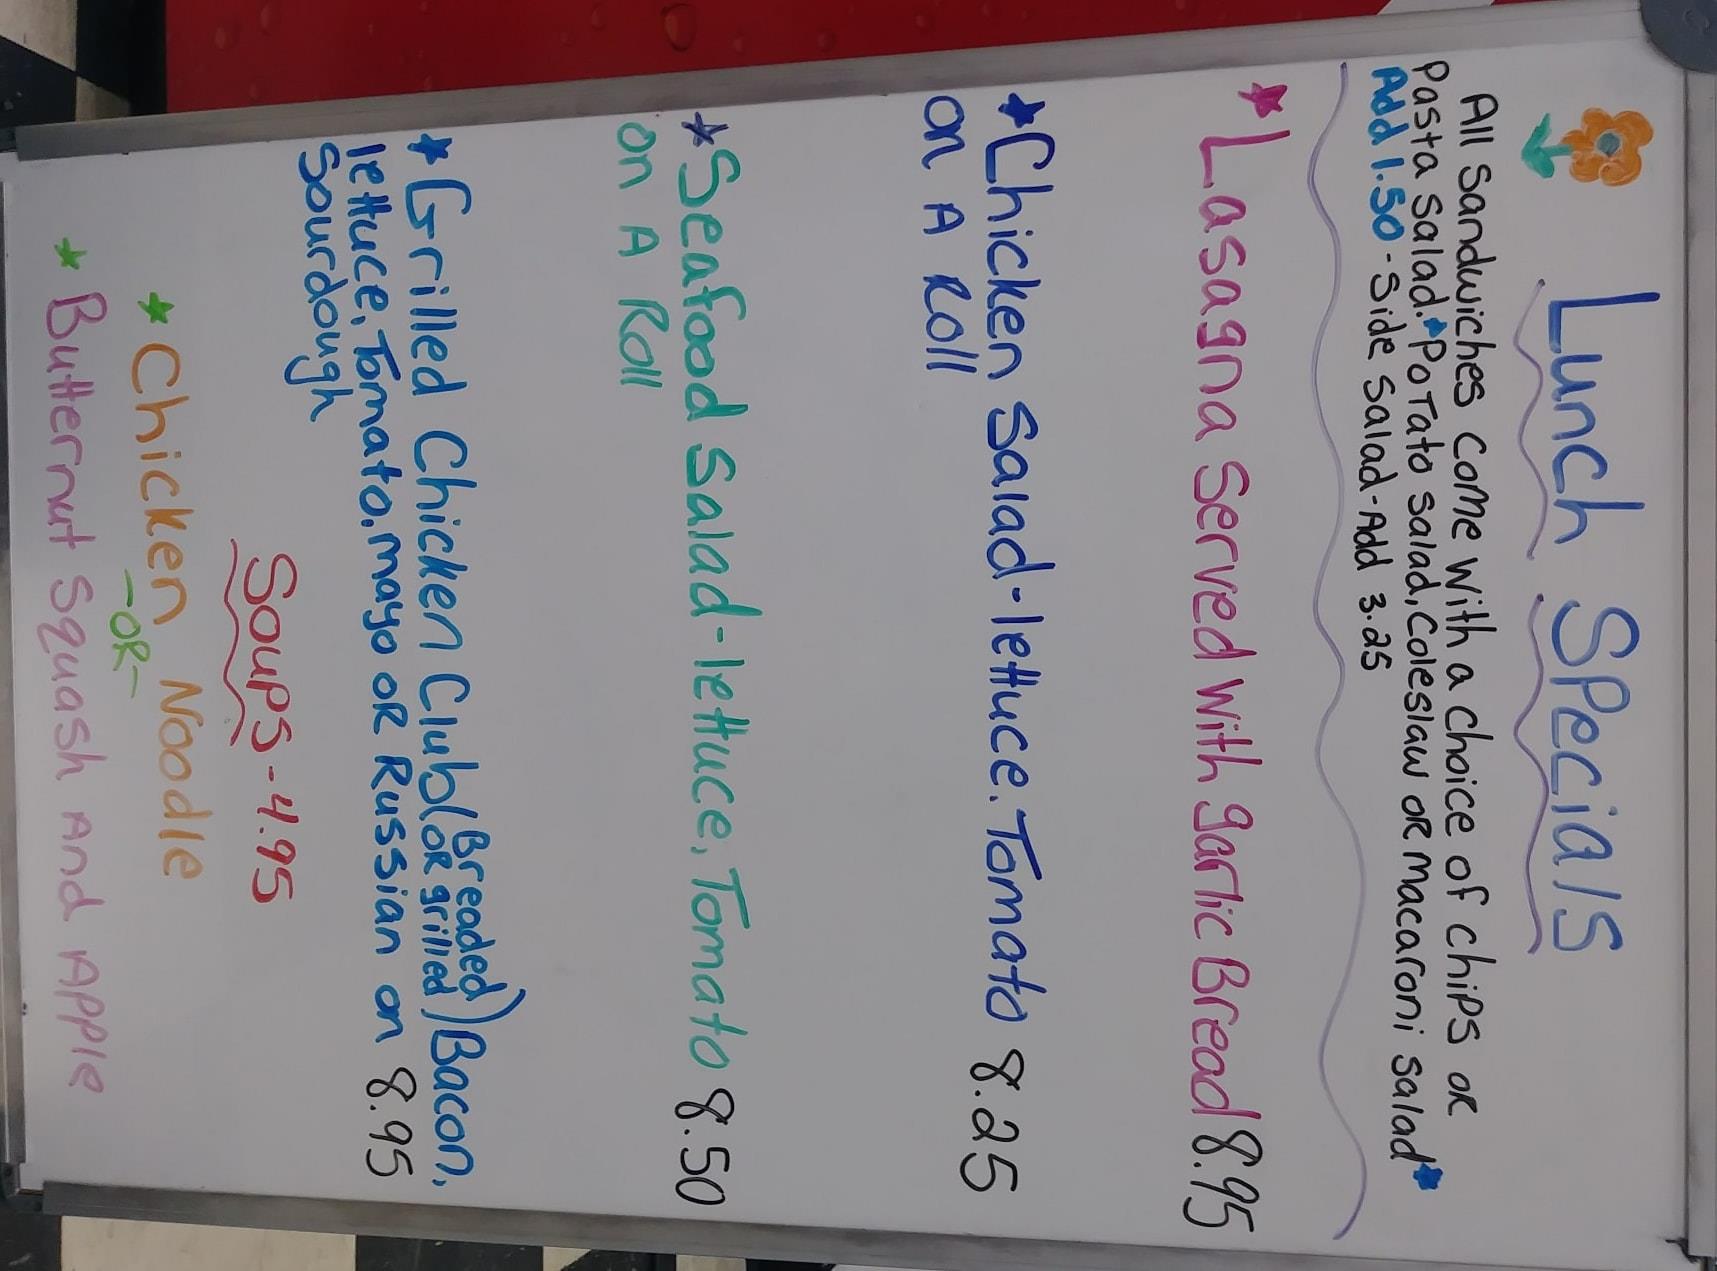 Lunch Specials
All Sandwiches Come With a Choice of Chips or
Pasta Salad.*Potato Salad, Coleslaw or Macaroni Salad*
Add 1.50 - Side Salad - Add 3.25
*Lasagna Served With garlic Bread 8.95
*Chicken Salad-lettuce.Tomato 8.25
on A Roll
*Seafood Salad-lettuce.Tomato 8.50
on A Roll
*Grilled Chicken Club (Breaded or grilled) Bacon,
lettuce, Tomato.mayo or Russian on 8.95
Sourdough
Soups-4.95
*Chicken Noodle
-OR-
*Butternut Squash And Apple